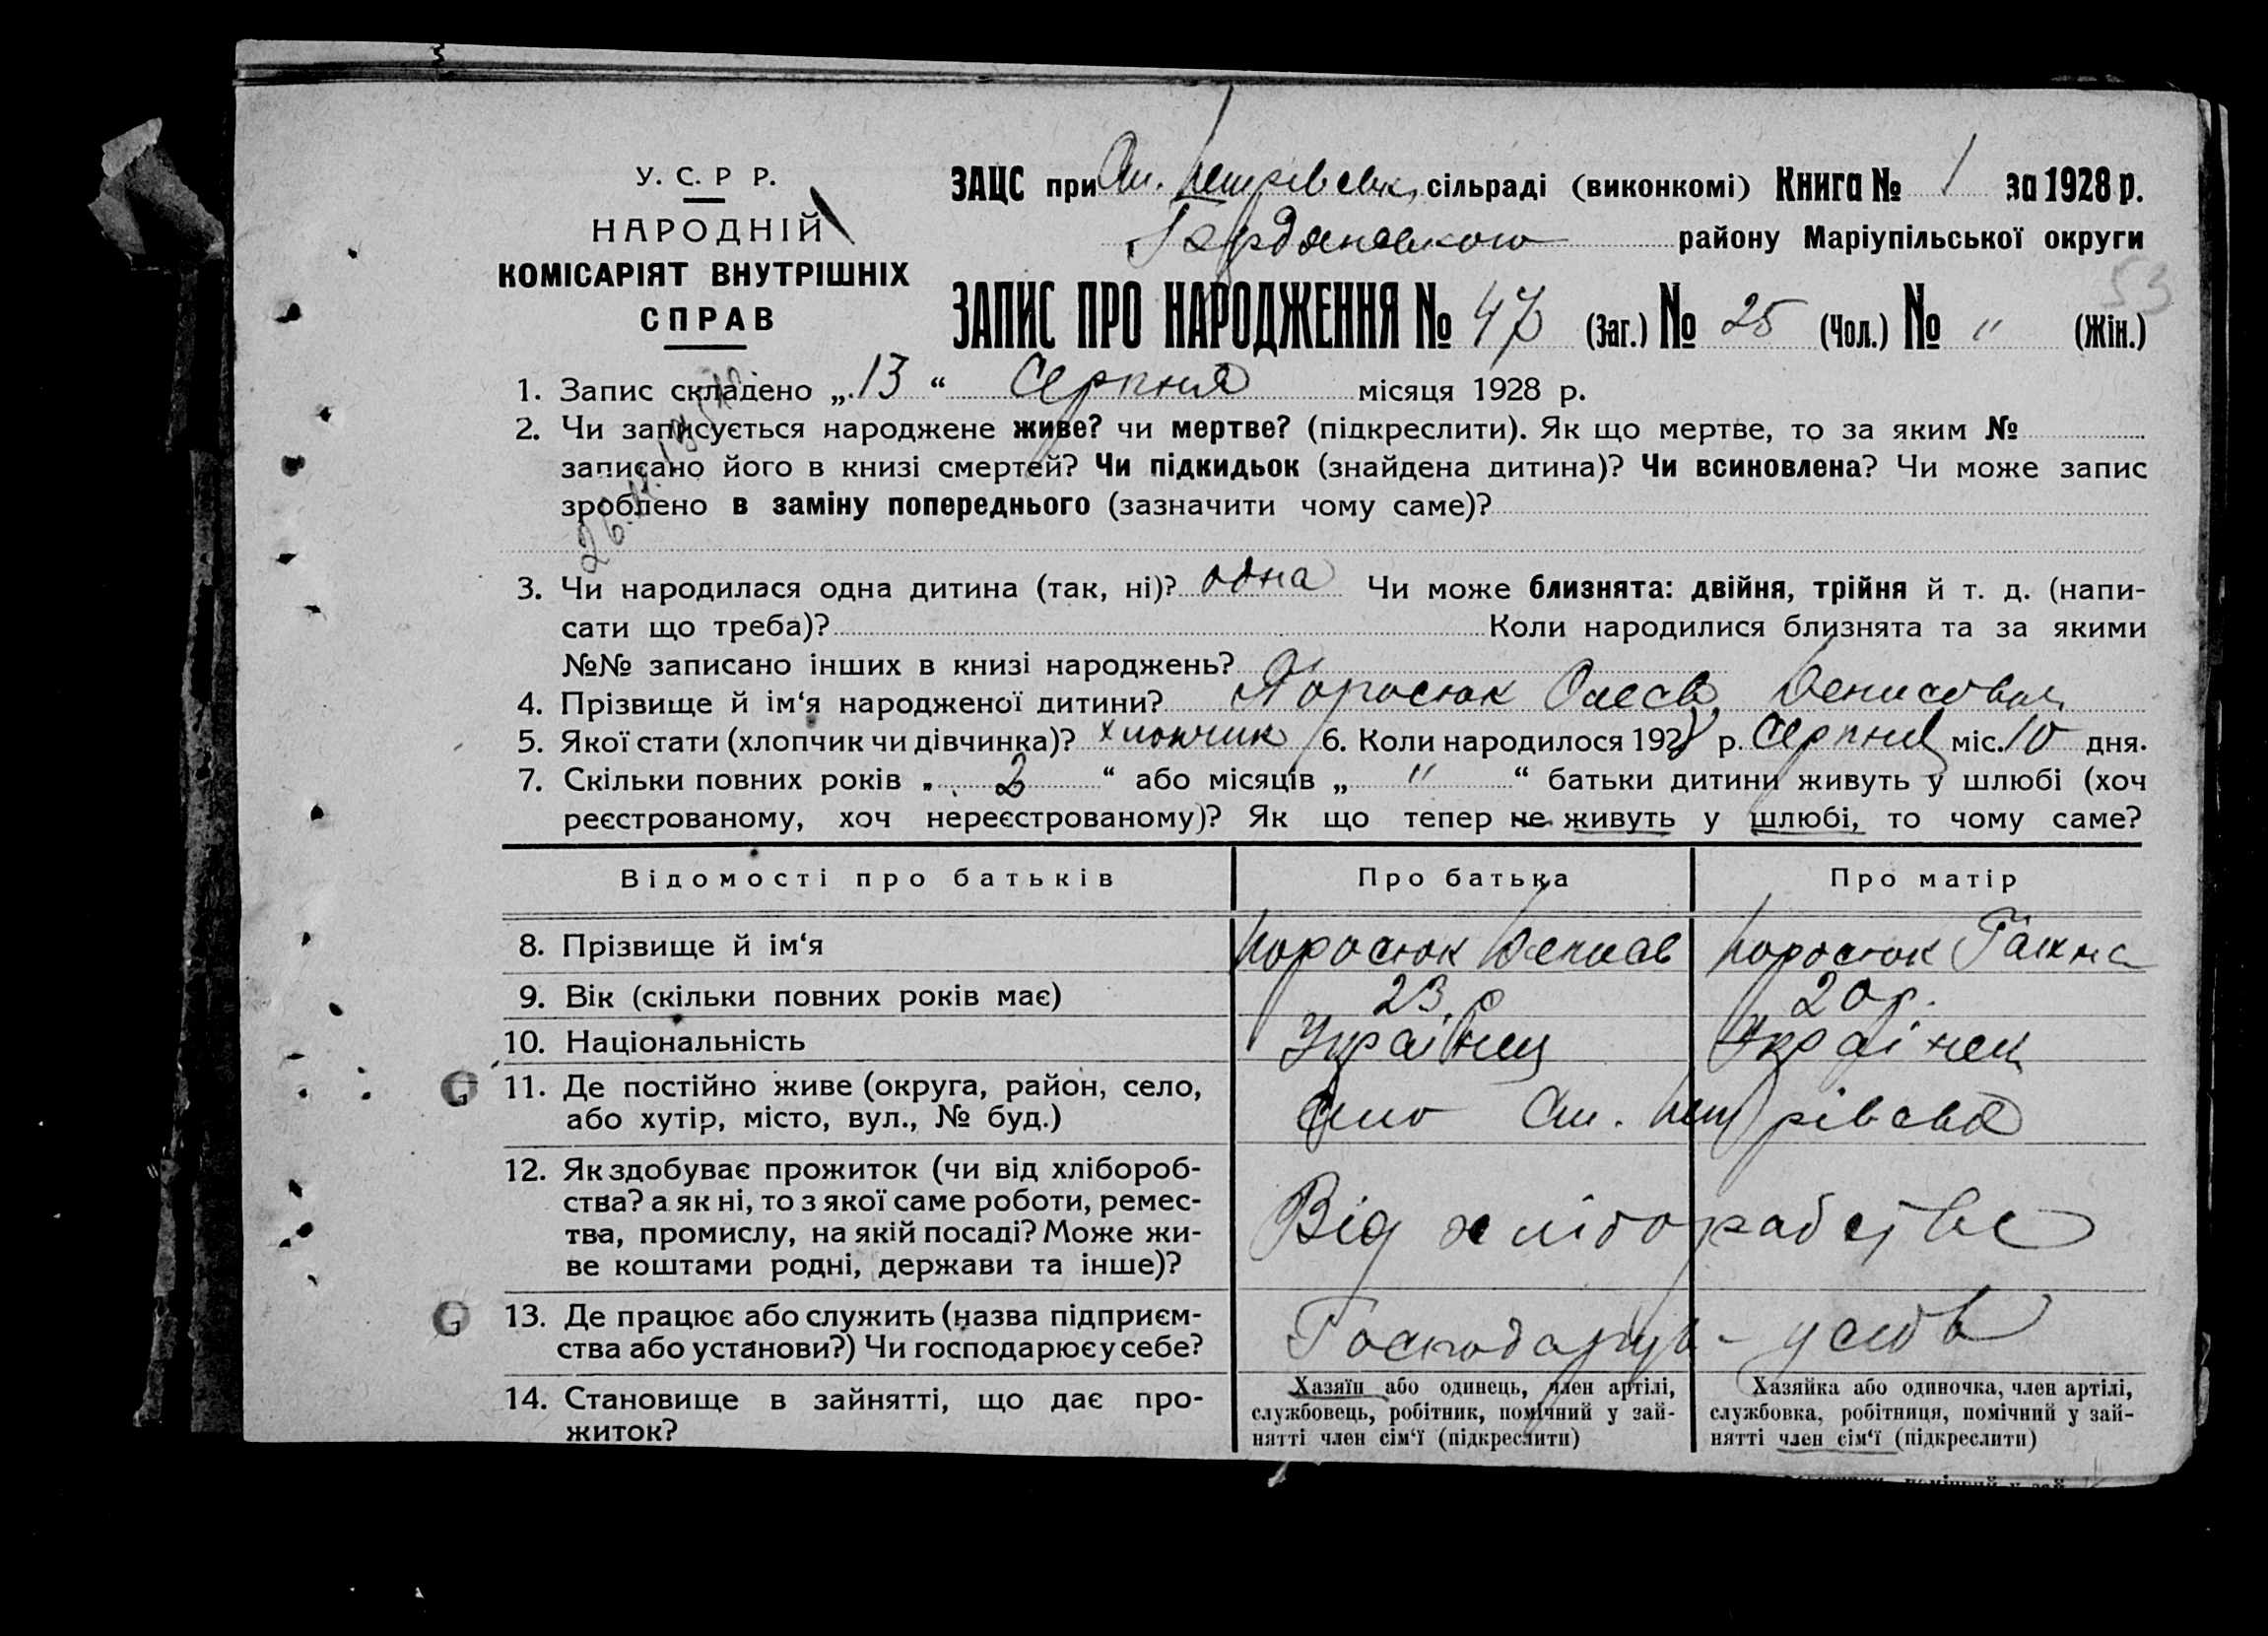 У. С. Р Р.
НАРОДНІЙ
КОМІСАРІЯТ ВНУТРІШНІХ
СПРАВ
ЗАЦС при Ст. Петрівськ. сільраді (виконкомі) Книга № 1 за 1928 р.
Бердянського району Маріупільської округи
53
ЗАПИС ПРО НАРОДЖЕННЯ № 47 (Заг.) № 25 (Чол.) № " (Жін.)
1. Запис складено „ 13 “ Серпня місяця 1928 р.
2. Чи записується народжене живе? чи мертве? (підкреслити). Як що мертве, то за яким №
записано його в книзі смертей? Чи підкидьок (знайдена дитина)? Чи всиновлена? Чи може запис
зроблено в заміну попереднього (зазначити чому саме)?
3. Чи народилася одна дитина (так, ні)? одна Чи може близнята: двійня, трійня й т. д. (напи-
сати що треба)? Коли народилися близнята та за якими
№№ записано інших в книзі народжень?
4. Прізвище й ім‘я народженої дитини? Поросюк
5. Якої стати (хлопчик чи дівчинка)? хлопчик 6. Коли народилося 1928 р. Серпня міс. 10 дня.
7. Скільки повних років „ 2 “ або місяців „ " “ батьки дитини живуть у шлюбі (хоч
реєстрованому, хоч нереєстрованому)? Як що тепер не живуть у шлюбі, то чому саме?
Відомості про батьків Про батька Про матір
8. Прізвище й ім‘я Поросюк Денис Поросюк
9. Вік (скільки повних років має) 23 р 20 р.
10. Національність Українец Українец
11. Де постійно живе (округа, район, село,
або хутір, місто, вул., № буд.) Село Ст. Петрівська
12. Як здобуває прожиток (чи від хлібороб-
ства? а як ні, то з якої саме роботи, ремес-
тва, промислу, на якій посаді? Може жи-
ве коштами родні, держави та інше)? Від хліборобства
13. Де працює або служить (назва підприєм-
ства або установи?) Чи господарює у себе? Господарує - у себе
14. Становище в зайнятті, що дає про-
житок?
Хазяїн або одинець, член артілі,
службовець, робітник, помічний у зай-
нятті член сім‘ї (підкреслити)
Хазяйка або одиночка, член артілі,
службовка, робітниця, помічний у зай-
нятті член сім‘ї (підкреслити)